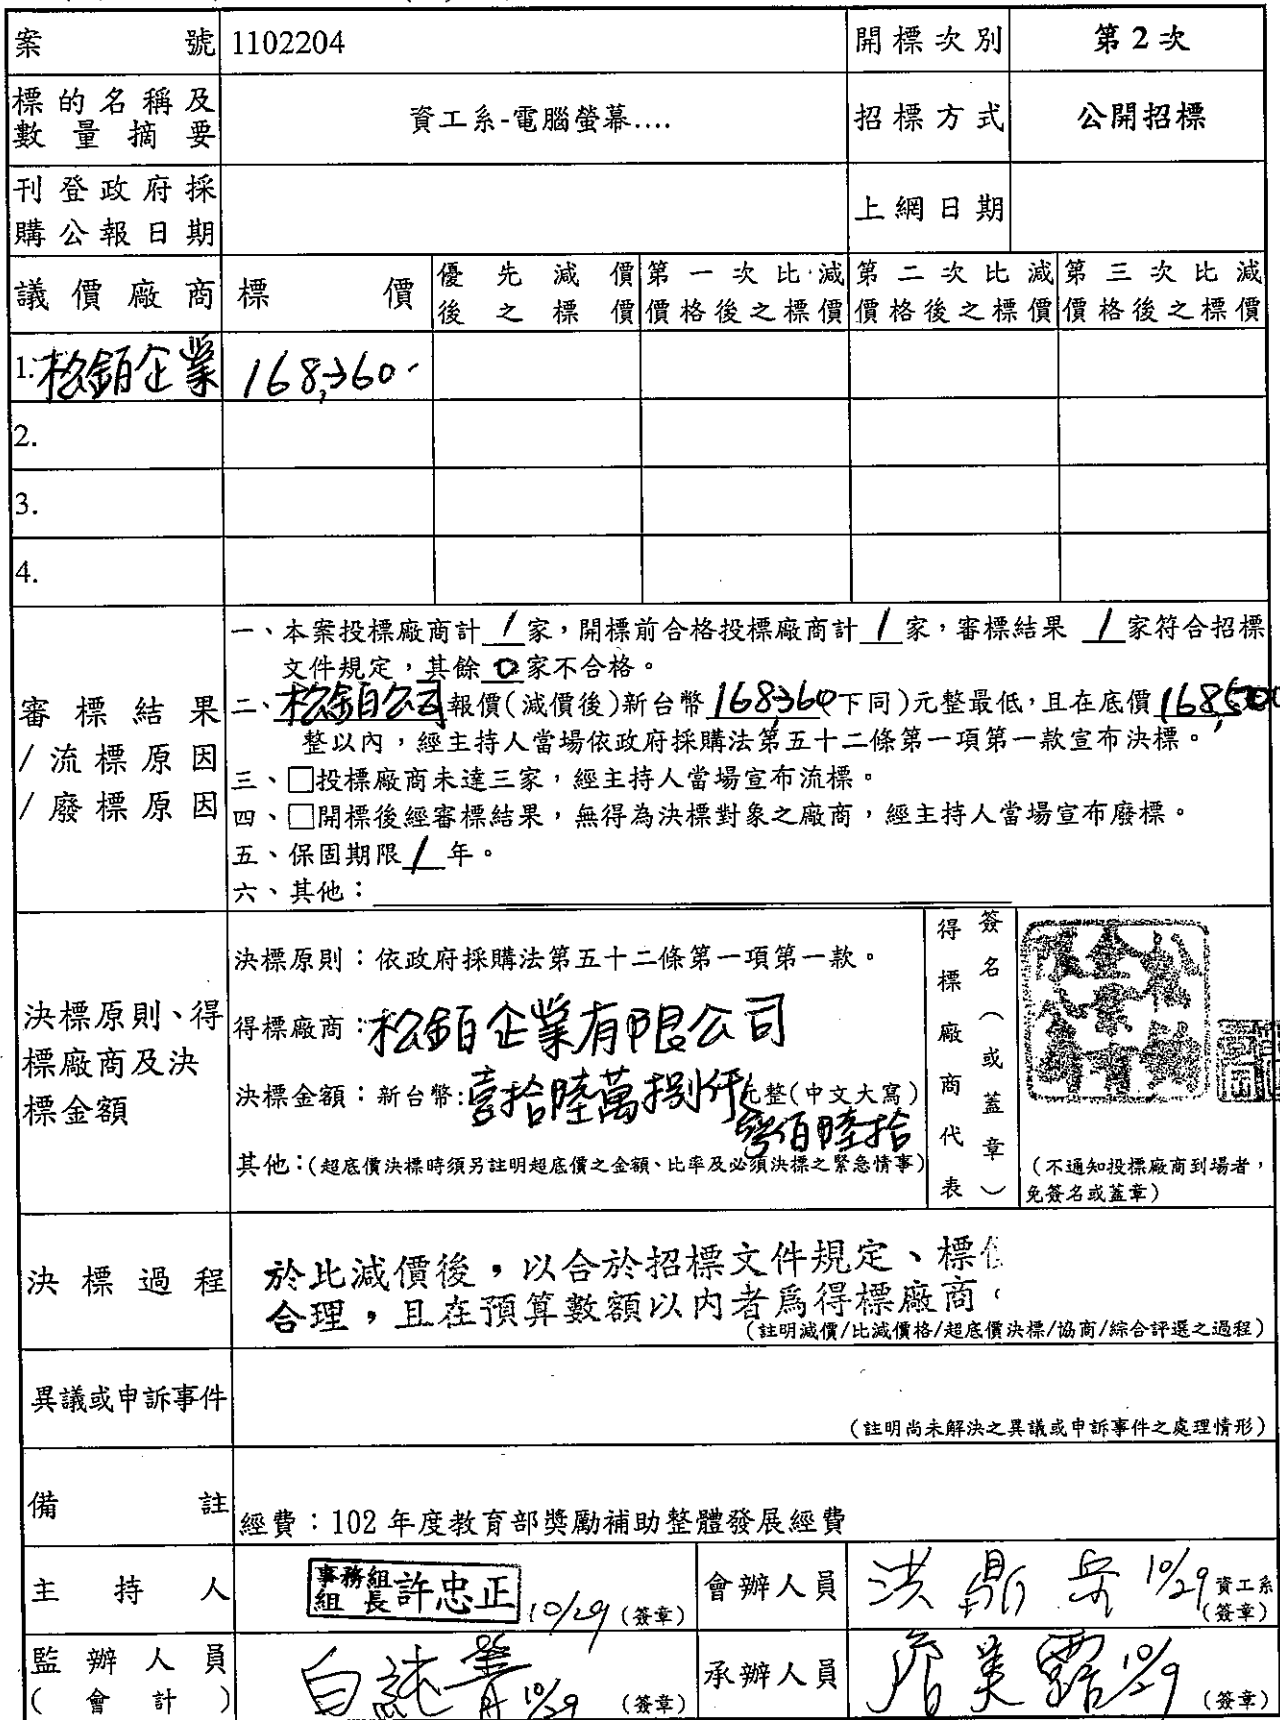 案號 1102204 開標次別 第2次
標的名稱及數量摘要 資工系-電腦螢幕.... 招標方式 公開招標
刊登政府採購公報日期 上網日期
議價廠商 標價 優先減價後之標價 第一次比減價格後之標價 第二次比減價格後之標價 第三次比減價格後之標價
1.松銆企業 168,360.
2.
3.
4.
審標結果/流標原因/廢標原因
一、本案投標廠商計 1 家，開標前合格投標廠商計 1 家，審標結果 1 家符合招標
文件規定，其餘 0 家不合格。
二、松銆公司報價(減價後)新台幣 168,360(下同)元整最低，且在底價 168,500
整以內，經主持人當場依政府採購法第五十二條第一項第一款宣布決標。
三、□投標廠商未達三家，經主持人當場宣布流標。
四、□開標後經審標結果，無得為決標對象之廠商，經主持人當場宣布廢標。
五、保固期限 1 年。
六、其他：
決標原則、得標廠商及決標金額
決標原則：依政府採購法第五十二條第一項第一款。
得標廠商：松銆企業有限公司
決標金額：新台幣:壹拾陸萬捌仟元整(中文大寫)
參佰陸拾
其他：(超底價決標時須另註明超底價之金額、比率及必須決標之緊急情事)
得標廠商代表
簽名（或蓋章）
(不通知投標廠商到場者，
免簽名或蓋章)
決標過程
於比減價後，以合於招標文件規定、標
合理，且在預算數額以內者為得標廠商
(註明減價/比減價格/超底價決標/協商/綜合評選之過程)
異議或申訴事件
(註明尚未解決之異議或申訴事件之處理情形)
備註 經費：102 年度教育部獎勵補助整體發展經費
主持人 事務組組長 許忠正 10/29 (簽章) 會辦人員 洪鼎岳 10/29 資工系(簽章)
監辦人員(會計) 白純菁 10/29 (簽章) 承辦人員 詹美露 10/29 (簽章)